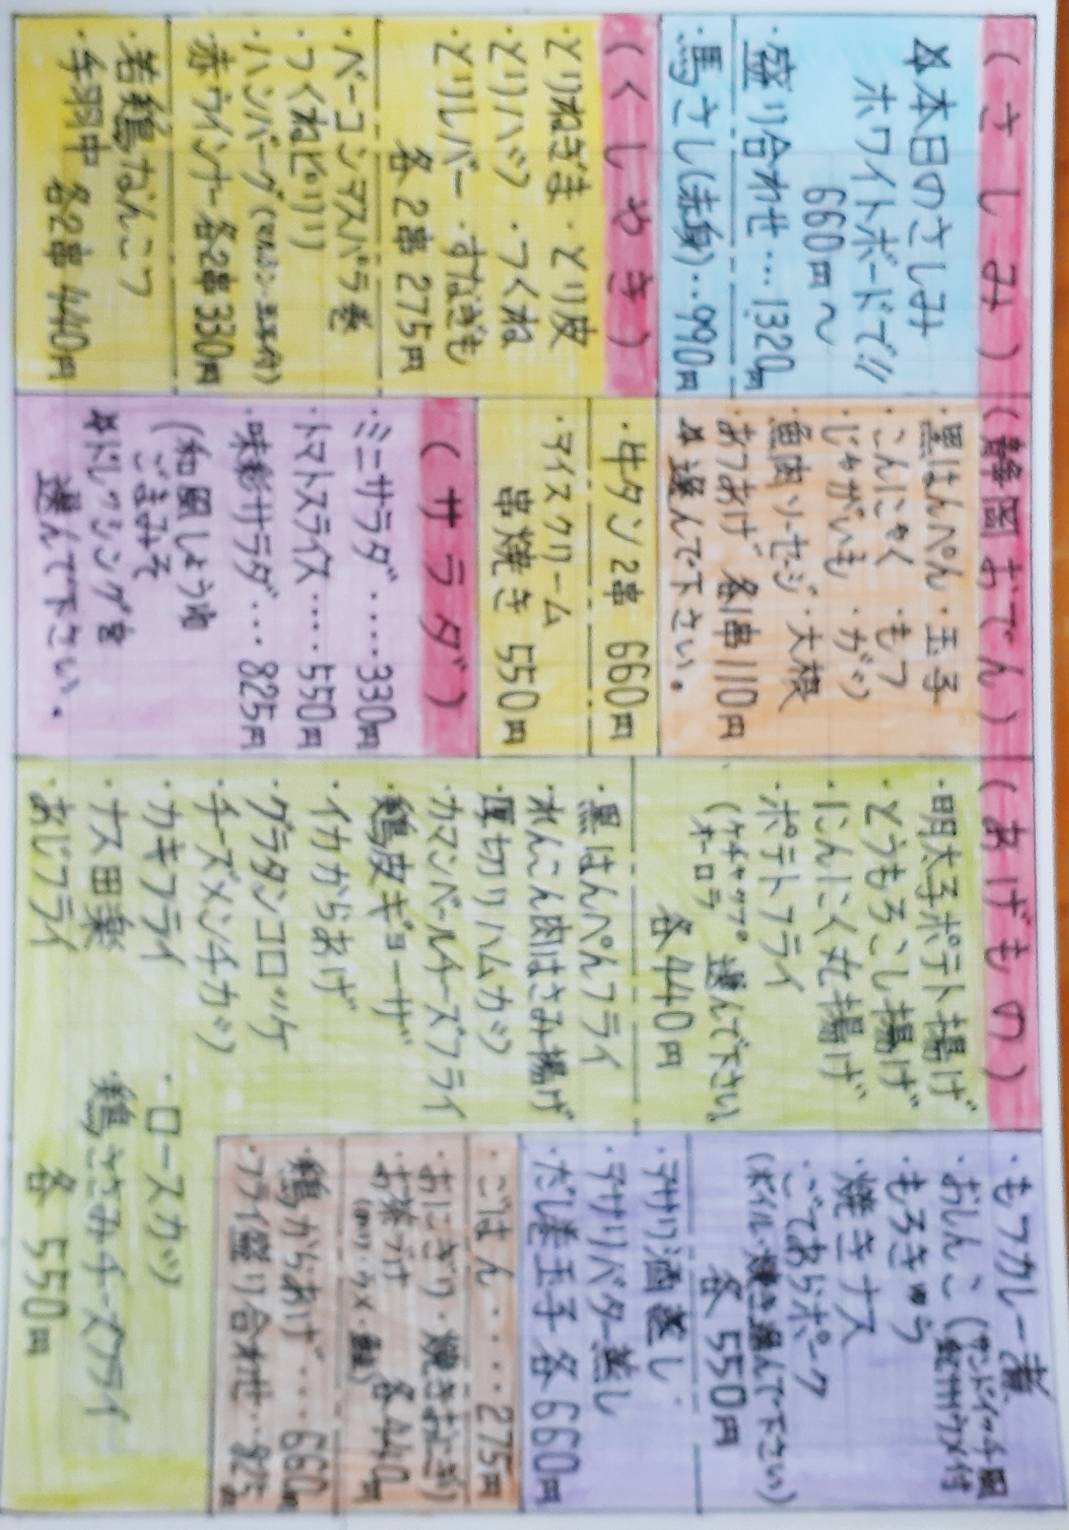 (さしみ)
☆本日のさしみ
ホワイトボードで!!
660円〜
盛り合わせ…1320円
・馬さし(赤身)…990円
(くしやき)
・とりねぎま・とり皮
・とりハツ・つくね
・とりレバー・すなぎも
各2串 275円
・ベーコンアスパラ巻
・つくねピリリ
・ハンバーグ
・赤ウインナー各2串330円
・若鶏なんこつ
・手羽中 各2串 440円
・牛タン2串 660円
・アイスクリーム
串焼き 550円
(静岡おでん)
・黒はんぺん・玉子
・こんにゃく・もつ
・じゃがいも・ガツ
・魚肉ソーセージ・大根
・あつあげ 各1串110円
☆選んで下さい。
(サラダ)
・ミニサラダ‥‥330円
・トマトスライス‥‥550円
・味彩サラダ…825円
(和風しょうゆ
ごまみそ
☆ドレッシングを
選んで下さい。
(あげもの)
・明太子ポテト揚げ
・とうもろこし揚げ
・にんにく丸揚げ
・ポテトフライ
(ケチャップ
オーロラ 選んで下さい)
各440円
・黒はんぺんフライ
・れんこん肉はさみ揚げ
・厚切りハムカツ
・カマンベールチーズフライ
・鶏皮ギョーザ
・イカからあげ
・グラタンコロッケ
・チーズメンチカツ
・カキフライ
・ナス田楽
・あじフライ
・ロースカツ
・鶏ささみチーズフライ
各550円
・もつカレー煮
・おしんこ(
・もろきゅう
・焼きナス
・ごてあらポーク
(ボイル・焼き選んで下さい)
各550円
・アサリ酒蒸し
・アサリバター蒸し
・だし巻玉子各660円
・ごはん‥‥275円
・おにぎり・焼きおにぎり
・お茶づけ 各440円
(のり・うめ・鮭)
・鶏からあげ…660円
・フライ盛り合わせ‥825円